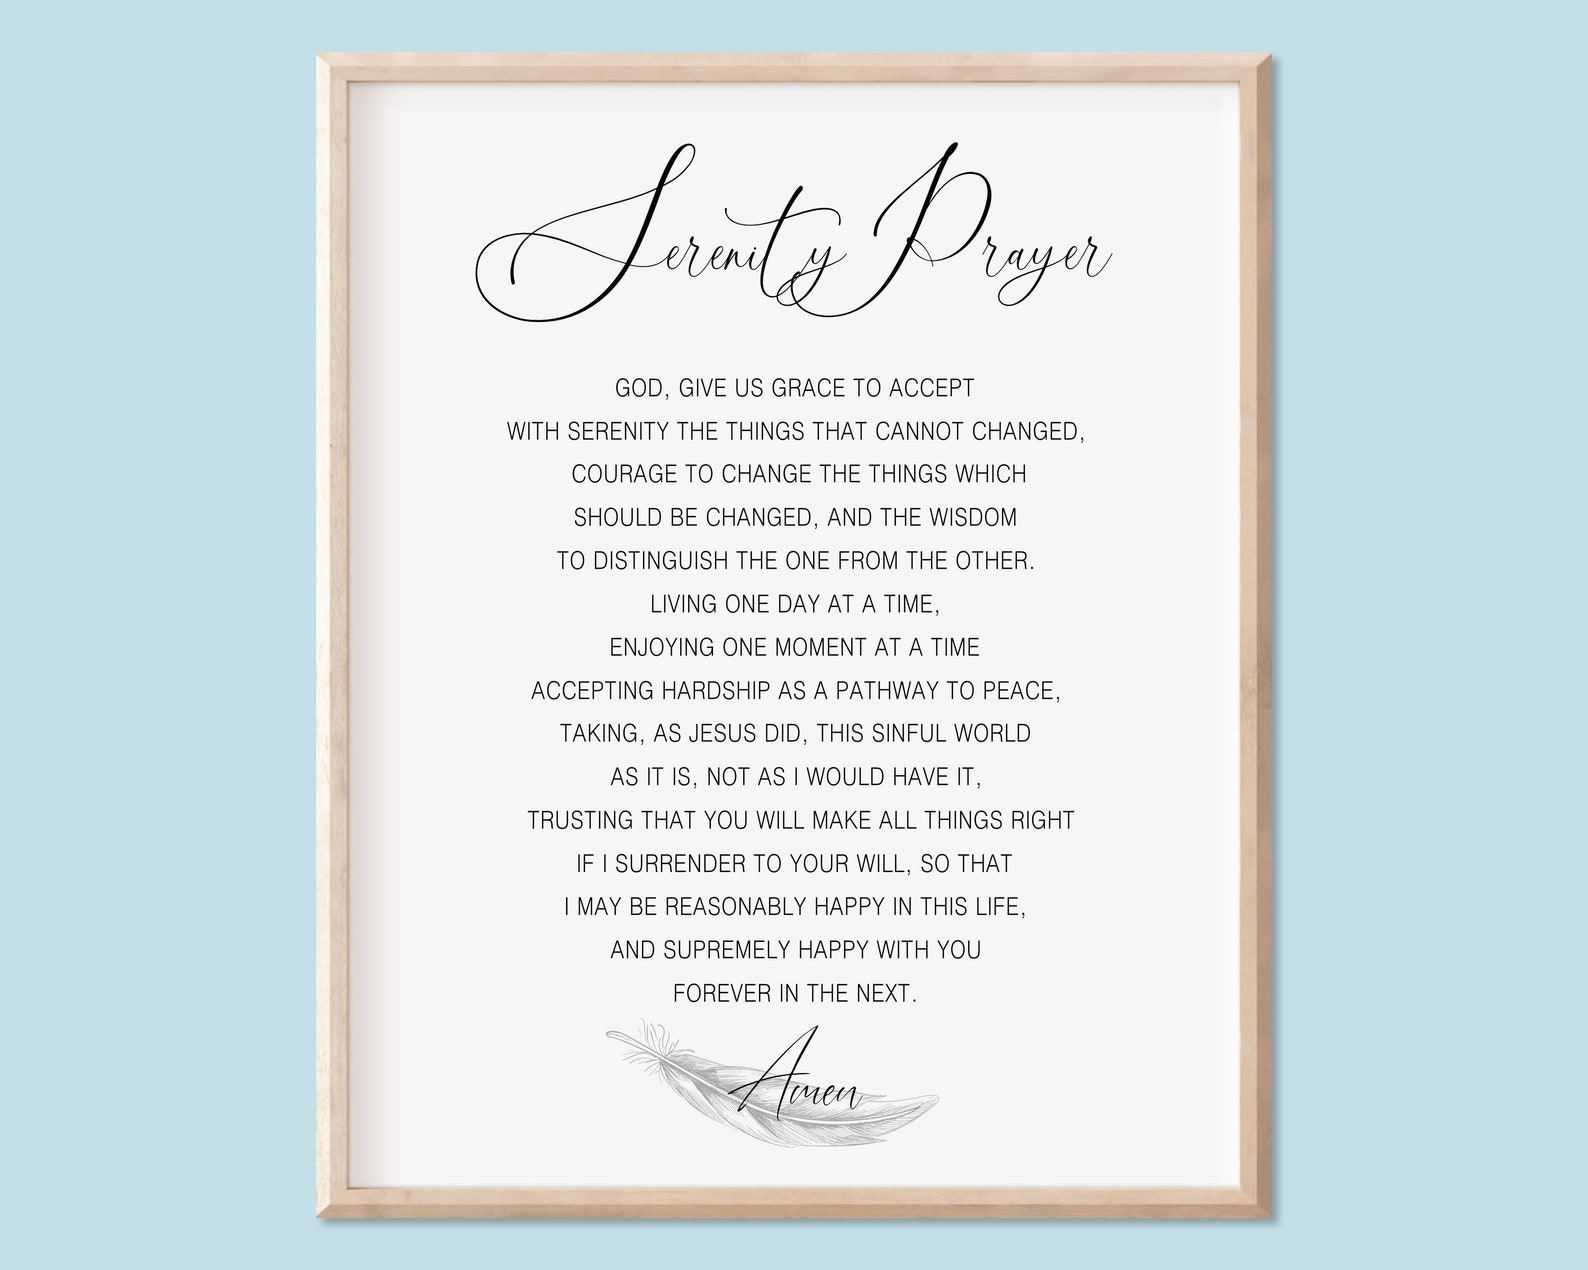 Serenity Prayer
GOD, GIVE US GRACE TO ACCEPT
WITH SERENITY THE THINGS THAT CANNOT CHANGED,
COURAGE TO CHANGE THE THINGS WHICH
SHOULD BE CHANGED, AND THE WISDOM
TO DISTINGUISH THE ONE FROM THE OTHER.
LIVING ONE DAY AT A TIME,
ENJOYING ONE MOMENT AT A TIME
ACCEPTING HARDSHIP AS A PATHWAY TO PEACE,
TAKING, AS JESUS DID, THIS SINFUL WORLD
AS IT IS, NOT AS I WOULD HAVE IT,
TRUSTING THAT YOU WILL MAKE ALL THINGS RIGHT
IF I SURRENDER TO YOUR WILL, SO THAT
I MAY BE REASONABLY HAPPY IN THIS LIFE,
AND SUPREMELY HAPPY WITH YOU
FOREVER IN THE NEXT.
Amen